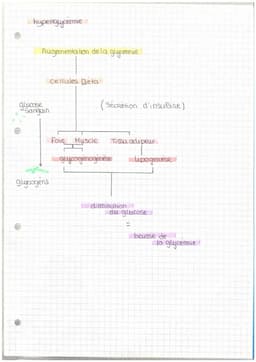 hyperglycemie
Augmentation de la glycemie
cellules Beta
glucose
sanguin
(Sécrétion d'insuline)
Foie Muscle Tissu adipeux
glycogénogénèse lipogenèse
glycogène
diminution
du glucose
=
baisse de
la glycemie